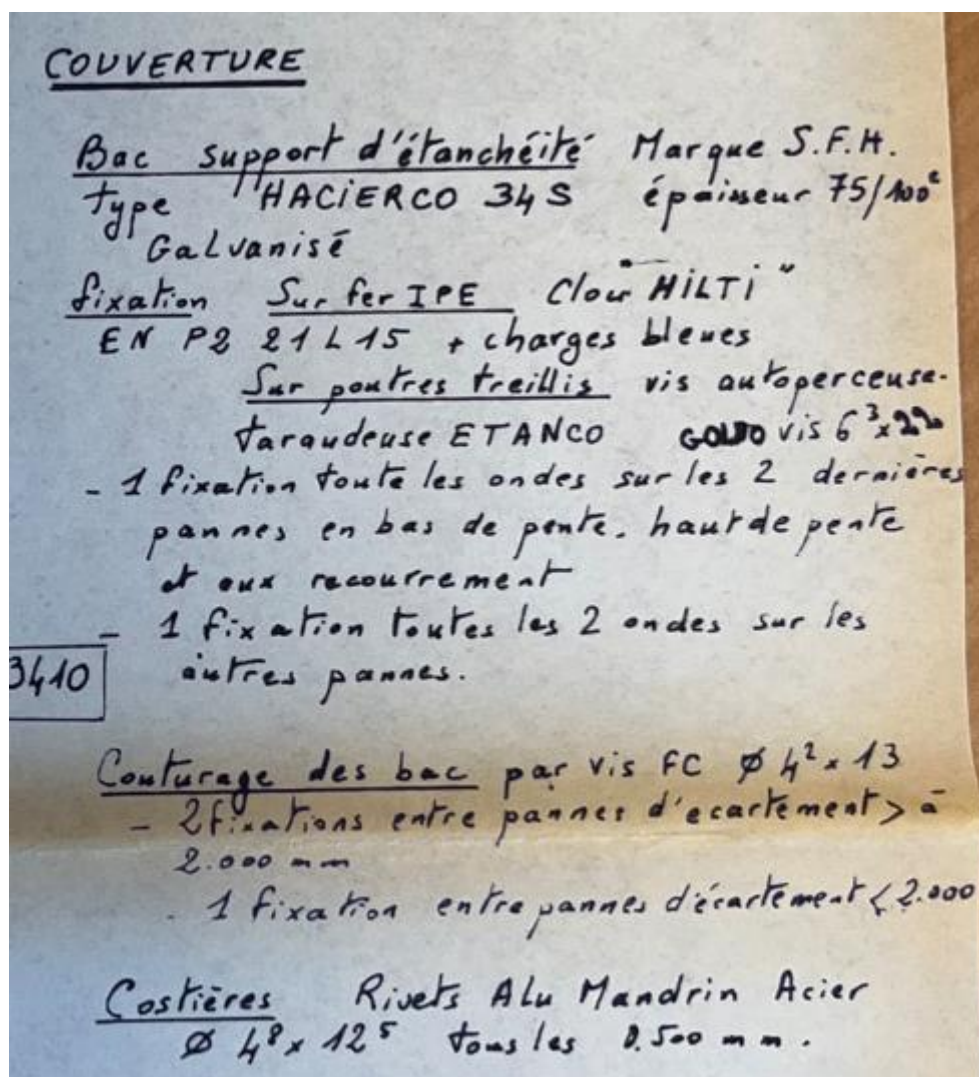 COUVERTURE
Bac support d'étanchéité Marque S.F.H.
type "HACIERCO 34S épaisseur 75/100e
Galvanisé
fixation Sur fer IPE Clou "HILTI"
EN P2 21 L 15 + charges bleues
Sur poutres treillis vis autoperceuse-
taraudeuse ETANCO vis 6³x22
- 1 fixation toute les ondes sur les 2 dernières
pannes en bas de pente. haut de pente
et aux recourrement
- 1 fixation toutes les 2 ondes sur les
autres pannes.
3410
Couturage des bac par vis FC Ø 4² x 13
- 2 fixations entre pannes d'ecartement > à
2.000 mm
. 1 fixation entre pannes d'écartement < 2.000
Costières Rivets Alu Mandrin Acier
Ø 4⁸ x 12⁵ tous les 0.500 mm.